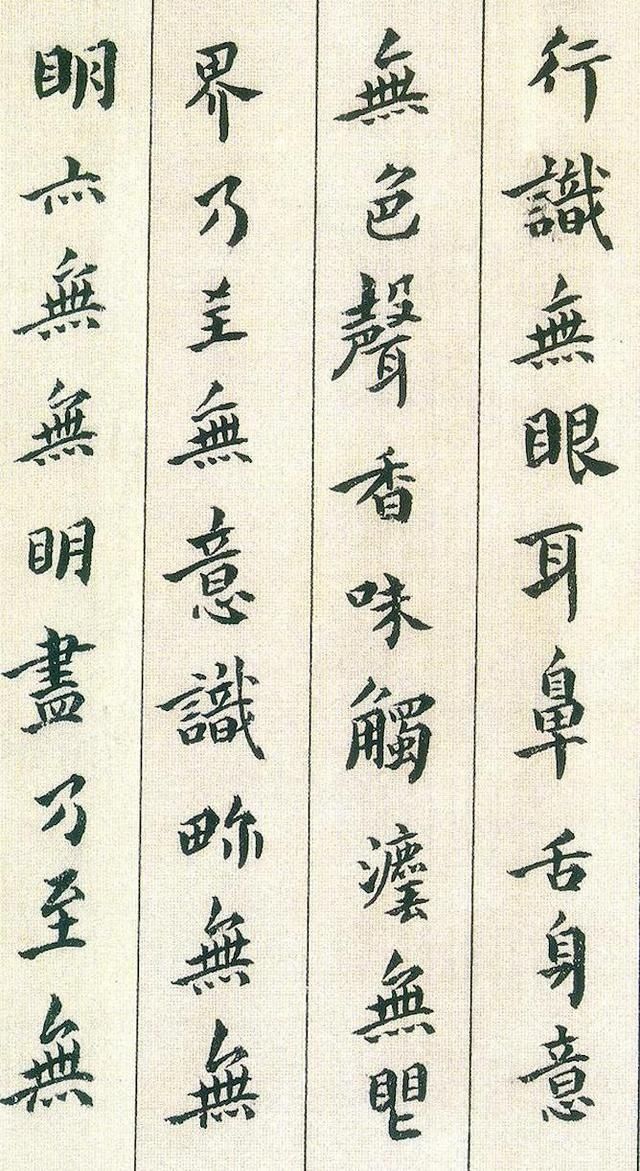 行識無眼耳鼻舌身意
無色聲香味觸灋無眼
界乃至無意識畍無無
眀亦無無眀盡乃至無